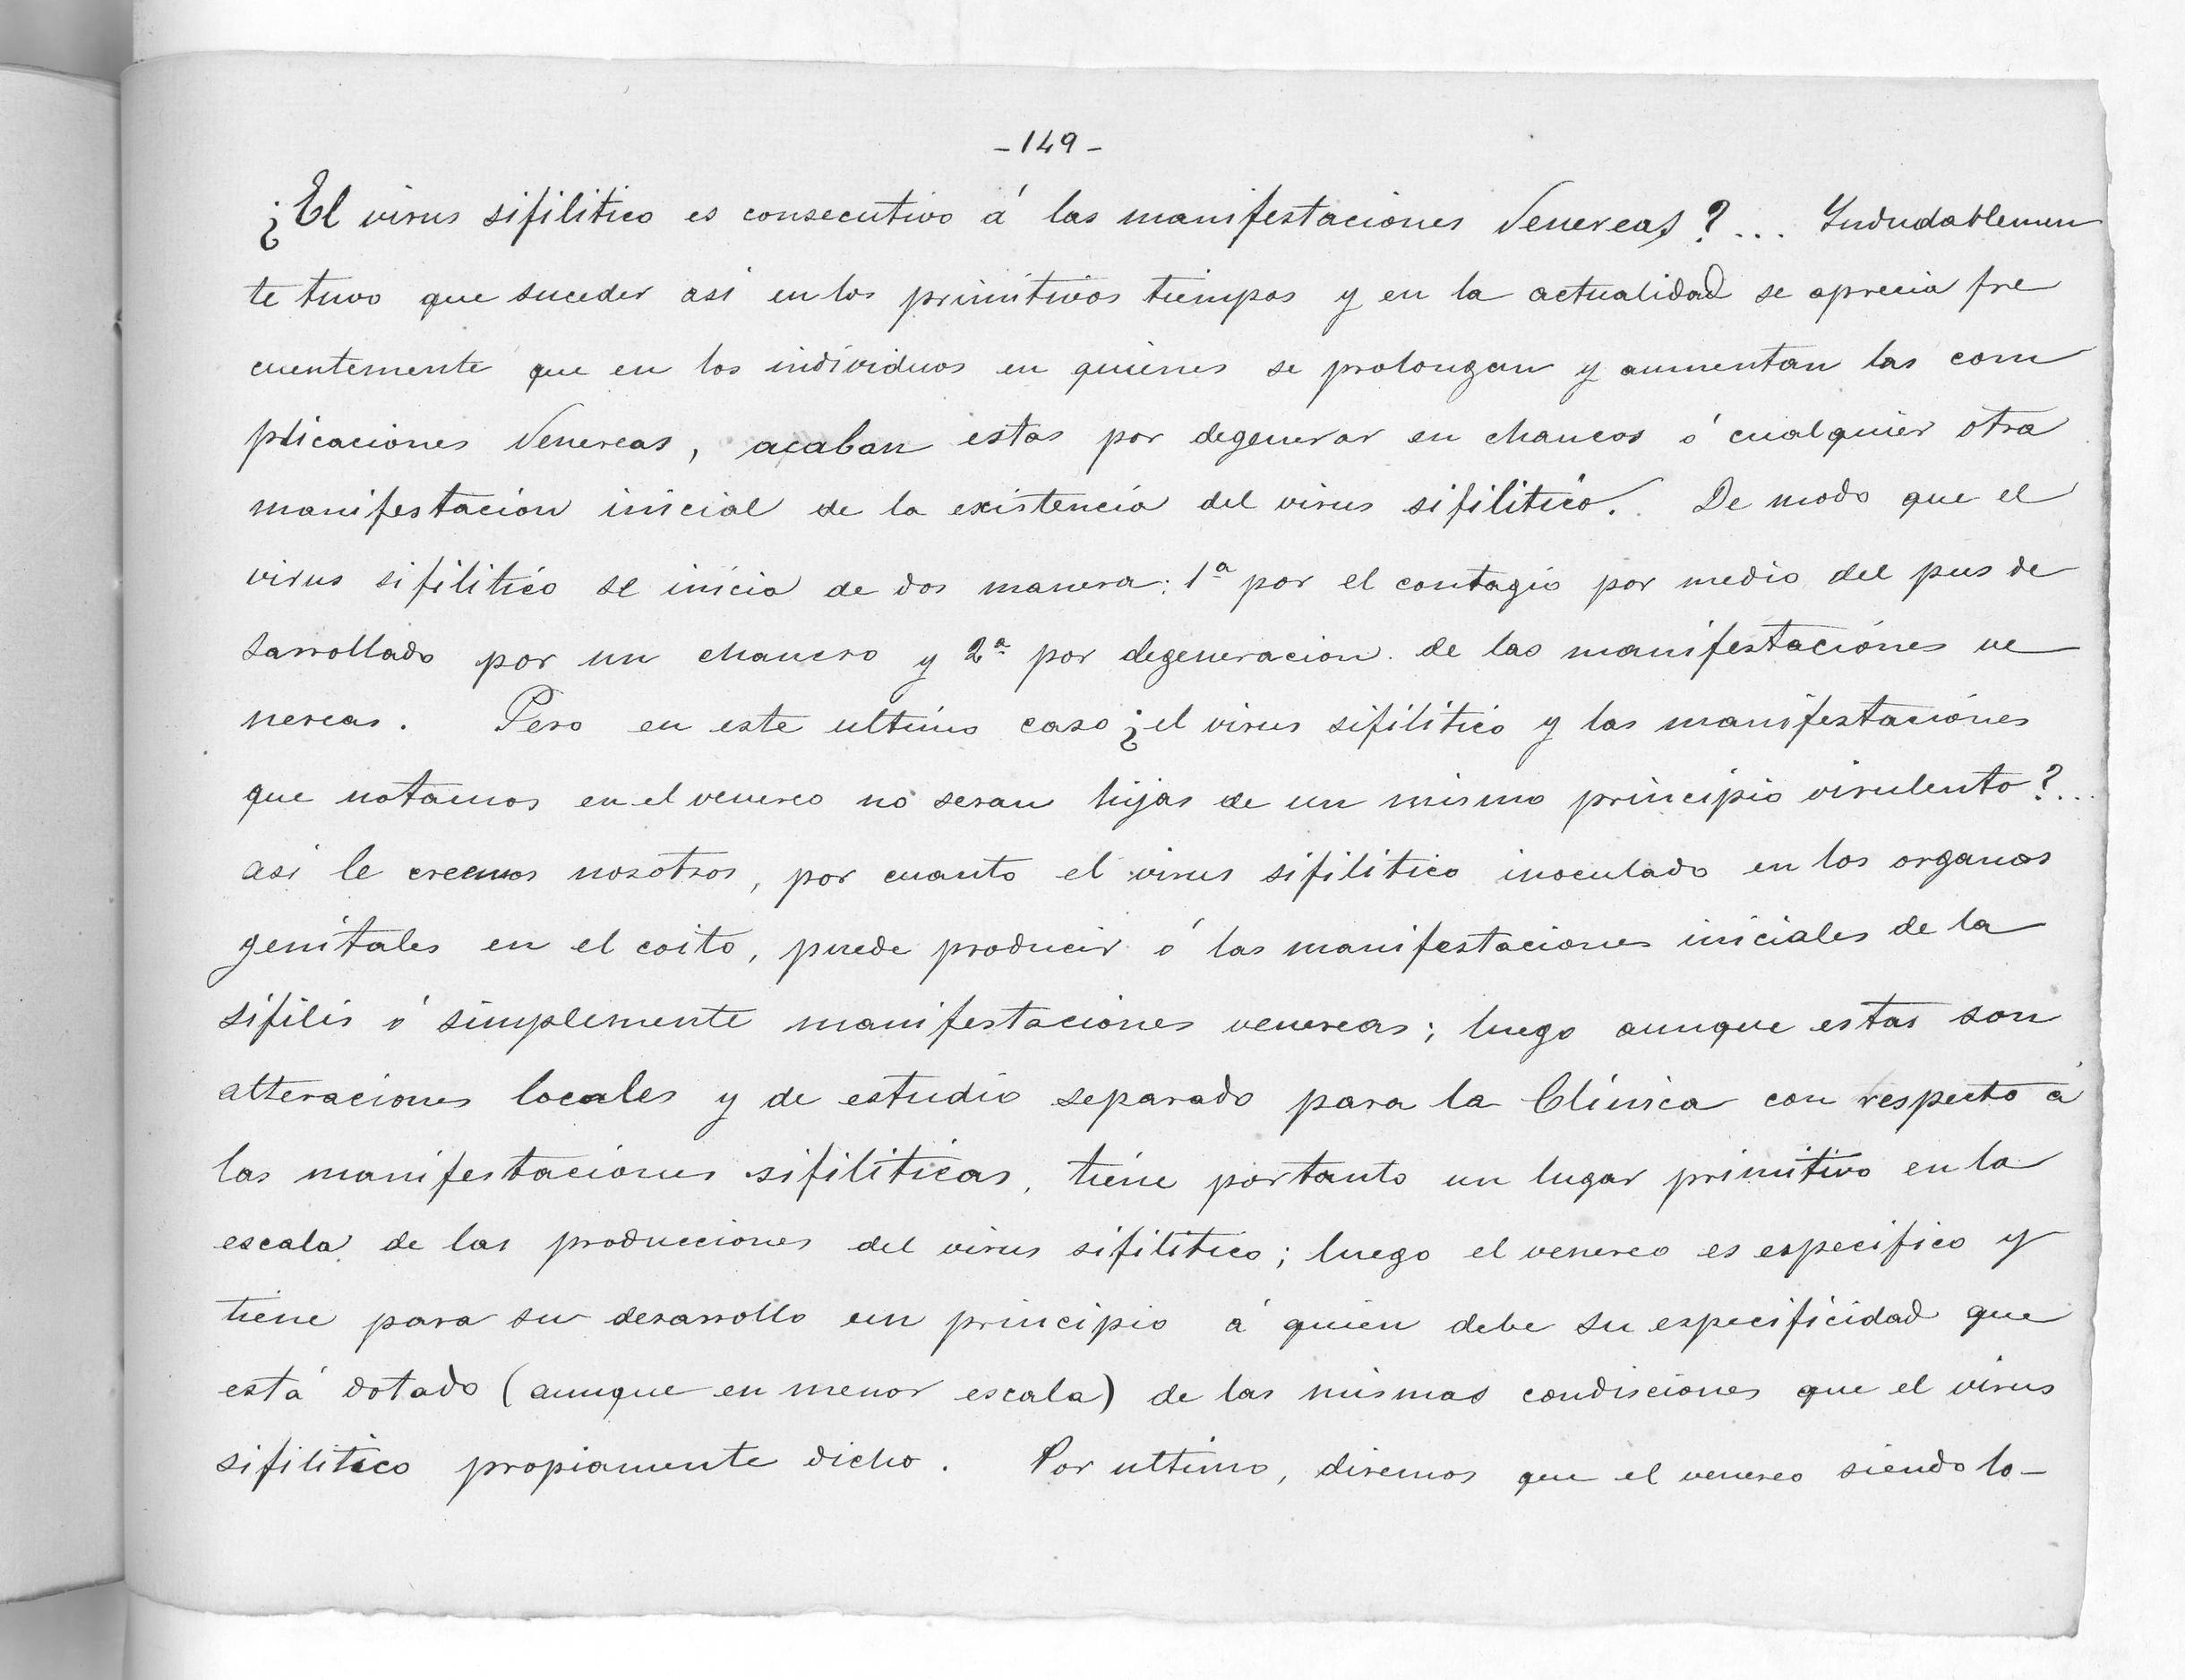 -149-
¿El virus sifilitico es consecutivo á las manifestaciones Venereas?... Indudablemen
te tuvo que suceder asi en los primitivos tiempos y en la actualidad se aprecia fre
cuentemente que en los individuos en quienes se prolongan y aumentan las com
plicaciones Venereas, acaban estas por degenerar en chancos ó cualquier otra
manifestacion inicial de la existencia del virus sifilitico. De modo que el
virus sifilitico se inicia de dos manera: 1ª por el contagio por medio del pus de
sarrollado por un chancro y 2ª por degeneracion de las manifestaciones ve
nereas. Pero en este ultimo caso ¿el virus sifilitico y las manifestaciones
que notamos en el venereo no seran hijas de un mismo principio virulento?...
asi le creemos nosotros, por cuanto el virus sifilitico inoculado en los organos
genitales en el coito, puede producir ó las manifestaciones iniciales de la
sifilis ó simplemente manifestaciones venereas; luego aunque estas son
alteraciones locales y de estudio separado para la Clinica con respecto á
las manifestaciones sifiliticas, tiene portanto un lugar primitivo en la
escala de las producciones del virus sifilitico; luego el venereo es especifico y
tiene para su desarrollo un principio á quien debe su especificidad que
está dotado (aunque en menor escala) de las mismas condiciones que el virus
sifilitico propiamente dicho. Por ultimo, diremos que el venereo siendo lo-